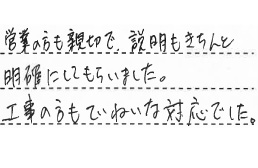 営業の方も親切で、説明もきちんと
明確にしてもらいました。
工事の方もていねいな対応でした。